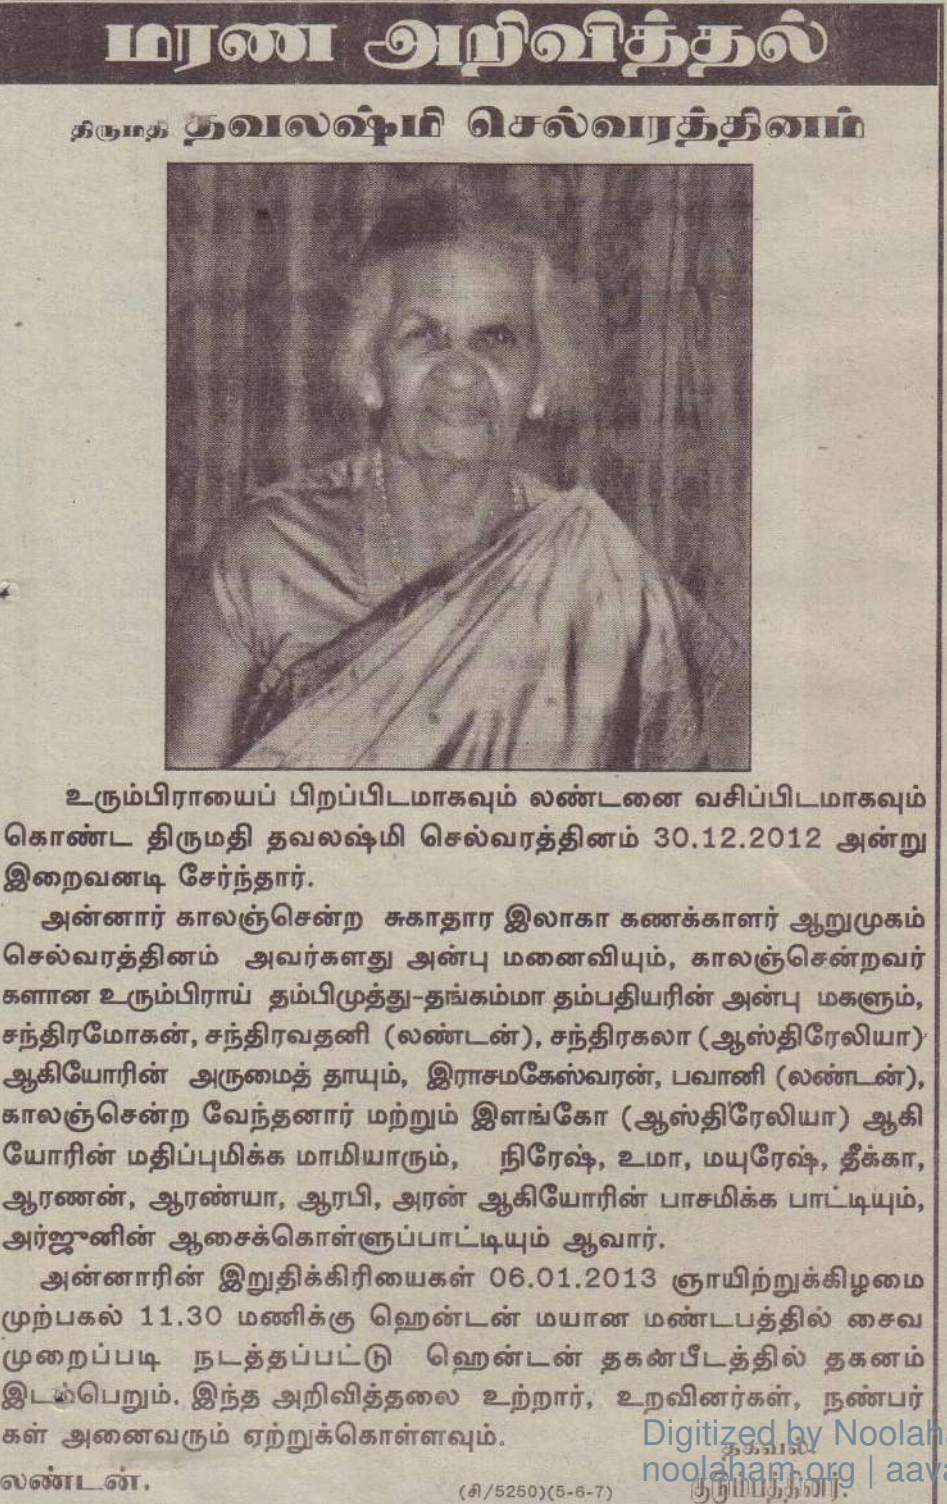 மரண அறிவித்தல்
திருமதி தவலஷ்மி செல்வரத்தினம்
உரும்பிராயைப் பிறப்பிடமாகவும் லண்டனை வசிப்பிடமாகவும்
கொண்ட திருமதி தவலஷ்மி செல்வரத்தினம் 30.12.2012 அன்று
இறைவனடி சேர்ந்தார்.
அன்னார் காலஞ்சென்ற சுகாதார இலாகா கணக்காளர் ஆறுமுகம்
செல்வரத்தினம் அவர்களது அன்பு மனைவியும், காலஞ்சென்றவர்
களான உரும்பிராய் தம்பிமுத்து-தங்கம்மா தம்பதியரின் அன்பு மகளும்,
சந்திரமோகன், சந்திரவதனி (லண்டன்), சந்திரகலா (ஆஸ்திரேலியா)
ஆகியோரின் அருமைத் தாயும், இராசமகேஸ்வரன், பவானி (லண்டன்),
காலஞ்சென்ற வேந்தனார் மற்றும் இளங்கோ (ஆஸ்திரேலியா) ஆகி
யோரின் மதிப்புமிக்க மாமியாரும், நிரேஷ், உமா, மயுரேஷ், தீக்கா,
ஆரணன், ஆரண்யா, ஆரபி, அரன் ஆகியோரின் பாசமிக்க பாட்டியும்,
அர்ஜுனின் ஆசைக்கொள்ளுப்பாட்டியும் ஆவார்.
அன்னாரின் இறுதிக்கிரியைகள் 06.01.2013 ஞாயிற்றுக்கிழமை
முற்பகல் 11.30 மணிக்கு ஹென்டன் மயான மண்டபத்தில் சைவ
முறைப்படி நடத்தப்பட்டு ஹென்டன் தகன்பீடத்தில் தகனம்
இடம்பெறும். இந்த அறிவித்தலை உற்றார், உறவினர்கள், நண்பர்
கள் அனைவரும் ஏற்றுக்கொள்ளவும்.
தகவல்
லண்டன். (சி/5250)(5-6-7) குடும்பத்தினர்.
Digitized by Noolah
noolaham.org | aava